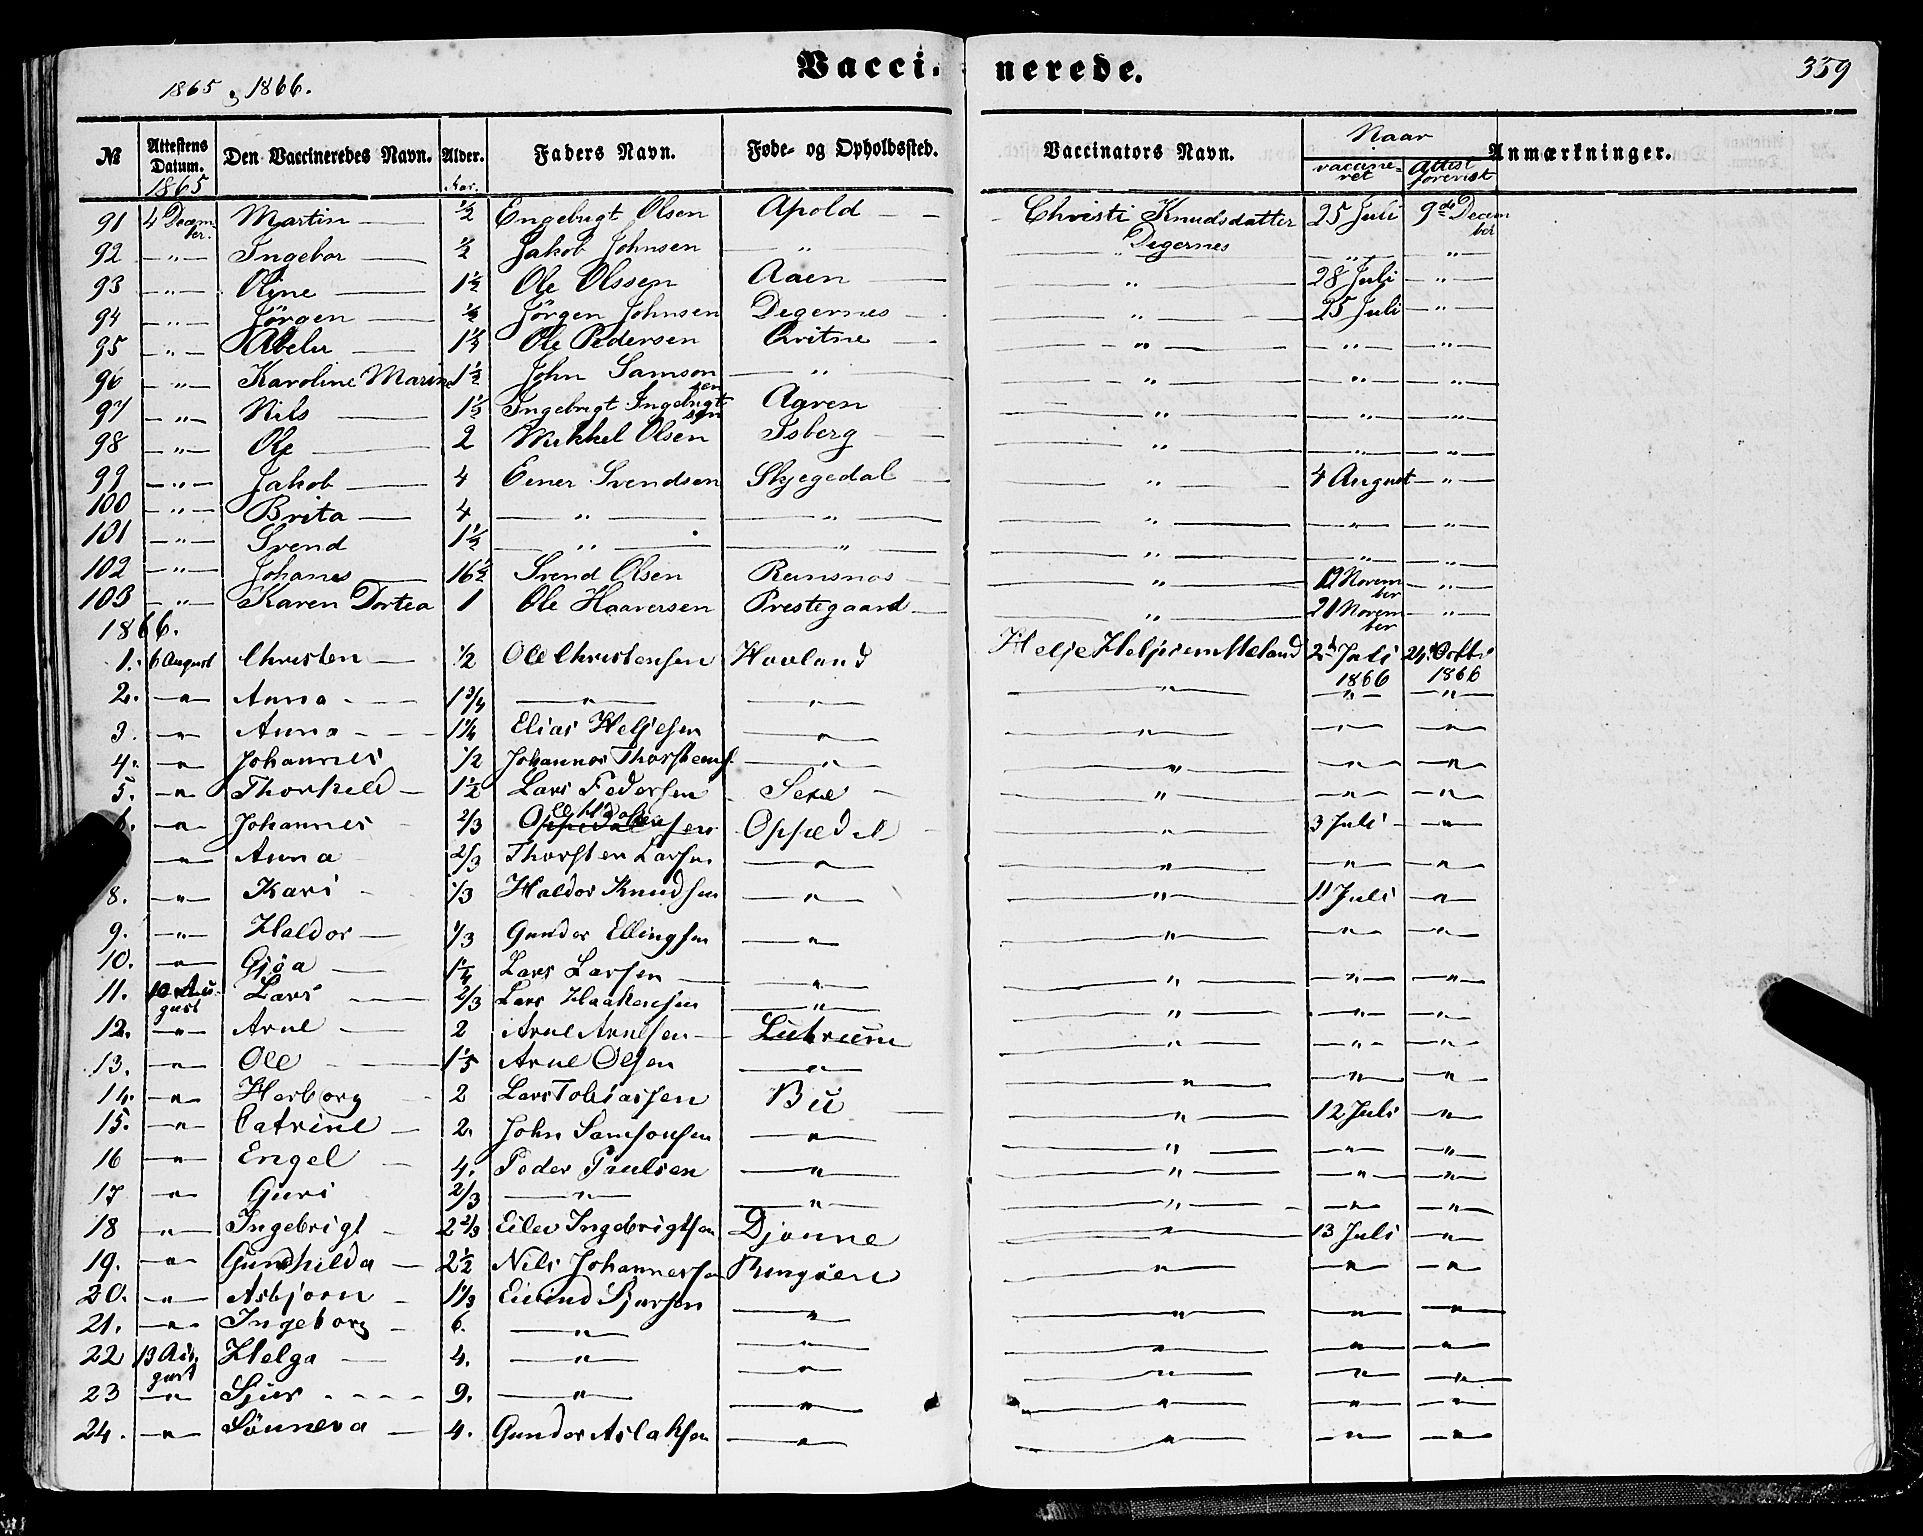 1865 & 1866.
Vaccinerede.
359
№ | Attestens Datum. | Den Vaccineredes Navn. | Alder. | Faders Navn. | Føde- og Opholdssted. | Vaccinators Navn. | Naar vaccineret | Attest forevist | Anmærkninger.
1865 | Aar.
91 | 4 December | Martin | 1/2 | Engebrigt Olsen | Apold | Christi Knudsdatter Degernes | 25 Juli | 9de December
92 | " | Ingebor | 1/2 | Jakob Johnsen | " | " | " | "
93 | " | Oline | 1 1/2 | Ole Olssen | Aaen | " | 28 Juli | "
94 | " | Jörgen | | Jörgen Johnsen | Degernes | " | 25 Juli | "
95 | " | Abelu | | Ole Pedersen | Qvitne | " | " | "
96 | " | Karoline Marine | 1 1/2 | John Samsonsen | " | " | " | "
97 | " | Nils | 1 1/2 | Ingebrigt Ingebrigtsen | Agren | " | " | "
98 | " | Ole | 2 | Mikkel Olsen | Isberg | " | " | "
99 | " | Jakob | 4 | Eener Svendsen | Skjegedal | " | 4 August | "
100 | " | Brita | 4 | " | " | " | " | "
101 | " | Svend | 1 1/2 | " | " | " | " | "
102 | " | Johanes | 16 1/2 | Svend Olsen | Reinsnos | " | 12 November | "
103 | " | Karen Dortea | 1 | Ole Haaversen | Prestegaard | " | 21 November | "
1866.
1. | 6 August | Christen | 1/2 | Ole Christensen | Hovland | Helje Heljesen Meland | 2d Juli 1866 | 24 Octbr 1866
2. | " | Anna | 1 3/4 | " | " | " | " | "
3. | " | Anna | 1 1/4 | Elias Heljesen | " | " | " | "
4. | " | Johannes | 1/2 | Johannes Thorstens. | " | " | " | "
5. | " | Thorkeld | 1 1/2 | Lars Pedersen | Sexe | " | " | "
6. | " | Johannes | 2/3 | | Oppedal | | 3 Juli | "
" | Anna | 2/3 | Thorsten Larsen | " | " | " | "
8. | " | Kari | 1/3 | Haldor Knudsen | " | " | 11 Juli | "
9. | " | Haldor | 1/3 | Gunder Ellingsen | " | " | " | "
10. | " | Gjöa | 1 1/4 | Lars Larsen | " | " | " | "
11. | 10 August | Lars | 2/3 | Lars Haakensen | " | " | " | "
12. | " | Arne | 2 | Arne Arnesen | Lutrum | " | " | "
13. | " | Ole | | Arne Olsen | " | " | " | "
14. | " | Herborg | 2 | Lars Tobiassen | Bu | " | 12 Juli | "
15. | " | Catrine | 2. | John Samsonsen | " | " | " | "
16 | " | Engel | 4. | Peder Paulsen | " | " | " | "
17 | " | Guri | 2/3 | " | " | " | " | "
18 | " | Ingebrigt | 2 2/3 | Eilev Ingebrigtsen | Djønne | " | 13 Juli | "
19. | " | Gunhilda | 2 1/2 | Nils Johannessen | Ringöen | " | " | "
20. | " | Asbjorn | 1 1/3 | Eivind Sjursen | " | " | " | "
21. | " | Ingeborg | 6. | " | " | " | " | "
22 | 13 August | Helga | 4. | " | " | " | " | "
23 | " | Sjur | 9. | " | " | " | " | "
24. | " | Sönneva | 4. | Gunder Aslaksen | " | " | " | "